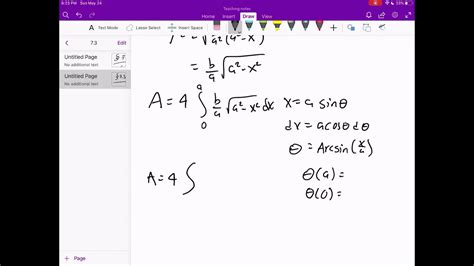 8:33 PM Sun May 24
Teaching notes
53%
Text Mode
Lasso Select
Insert Space
7.3
Edit
Untitled Page
No additional text
Untitled Page
No additional text
= b/a √(a²-x²)
A = 4 ∫₀ᵃ b/a √(a²-x²) dx    x = a sinθ
dx = a cosθ dθ
θ = Arcsin(x/a)
A = 4 ∫    θ(a) =
θ(0) =